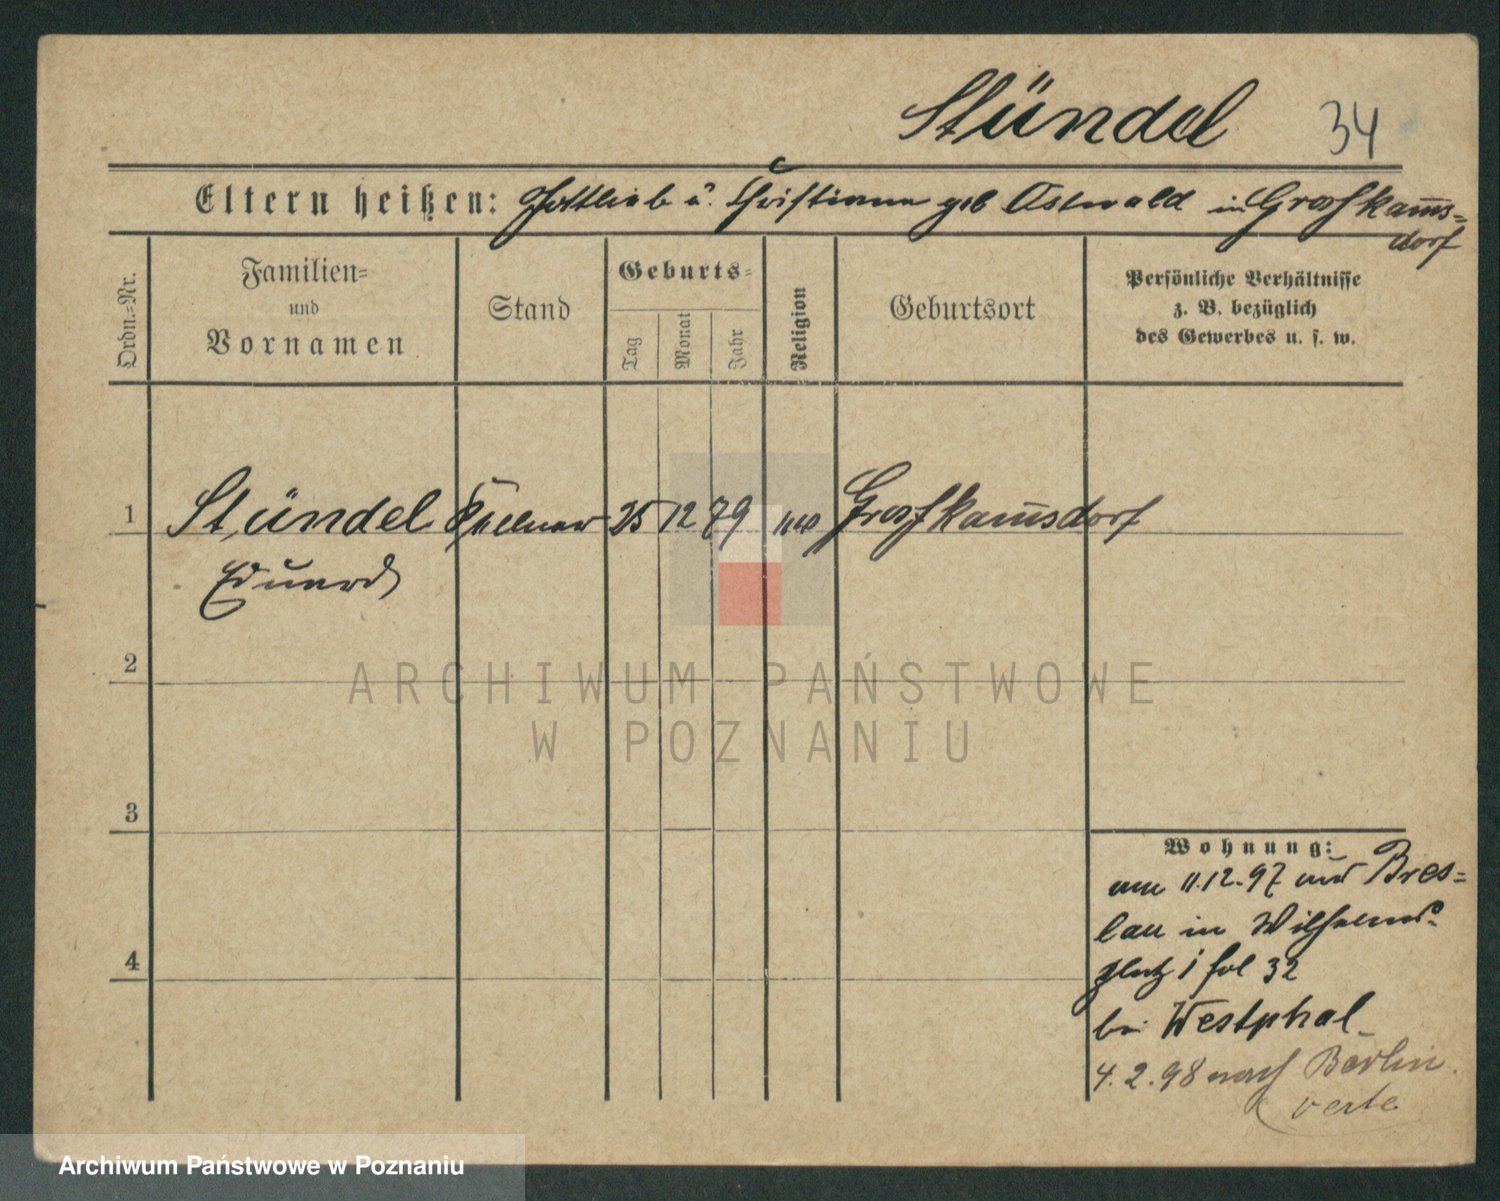 Stündel 34
Eltern heißen: Gottlieb u. Christiane geb Ostwald in Großkam̅s=
dorf
Ordn.=Nr.
Familien=
und
Vornamen
Stand
Geburts=
Tag
Monat
Jahr
Religion
Geburtsort
Persönliche Verhältnisse
z. B. bezüglich
des Gewerbes u. s. w.
1 Stündel Kellner 25 12 79 Großkam̅sdorf
Eduard
2
ARCHIWUM PAŃSTWOWE
W POZNANIU
3
4
Wohnung:
am 11.12.97 aus Bres=
lau in Wilhelms=
platz 1 fol 32
bei Westphal
4.2.98 nach Berlin.
verte
Archiwum Państwowe w Poznaniu